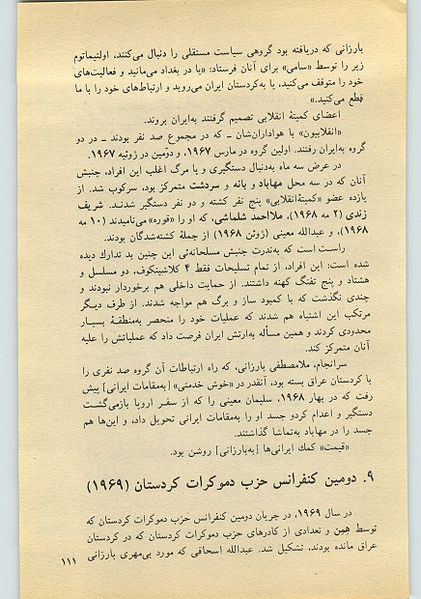 بارزانی که دریافته بود گروهی سیاست مستقلی را دنبال می‌کنند، اولتیماتوم
زیر را توسط «سامی» برای آنان فرستاد: «یا در بغداد می‌مانید و فعالیت‌های
خود را متوقف می‌کنید، یا به‌کردستان ایران می‌روید و ارتباط‌های خود را با ما
قطع می‌کنید.»
اعضای کمیتهٔ انقلابی تصمیم گرفتند به‌ایران بروند.
«انقلابیون» با هواداران‌شان ــ که در مجموع صد نفر بودند ــ در دو
گروه به‌ایران رفتند. اولین گروه در مارس ۱۹۶۷، و دوّمین در ژوئیه ۱۹۶۷.
در عرض سه ماه به‌دنبال دستگیری و یا مرگ اغلب این افراد، جنبش
آنان که در سه محل مهاباد و بانه و سردشت متمرکز بود، سرکوب شد. از
یازده عضو «کمیتهٔ‌انقلابی» پنج نفر کشته و دو نفر دستگیر شدند. شریف
زندی (۲ مه ۱۹۶۸)، ملااحمد شلماشی، که او را «قوره» می‌نامیدند (۱۰ مه
۱۹۶۸)، و عبدالله معینی (ژوئن ۱۹۶۸) از جملهٔ کشته‌شدگان بودند.
راست است که به‌ندرت جنبش مسلحانه‌ئی این چنین بد تدارک دیده
شده است: این افراد، از تمام تسلیحات فقط ۴ کلاشینکوف، دو مسلسل و
هشتاد و پنج تفنگ کهنه داشتند. از حمایت داخلی هم برخوردار نبودند و
چندی نگذشت که با کمبود ساز و برگ هم مواجه شدند. از طرف دیگر
مرتکب این اشتباه هم شدند که عملیات خود را منحصر به‌منطقهٔ بسیار
محدودی کردند و همین مسأله به‌ارتش ایران فرصت داد که عملیاتش را علیه
آنان متمرکز کند.
سرانجام، ملامصطفی بارزانی، که راه ارتباطات آن گروه صد نفری را
با کردستان عراق بسته بود، آنقدر در «خوش خدمتی» [به‌مقامات ایرانی] پیش
رفت که در بهار ۱۹۶۸، سلیمان معینی را که از سفر اروپا بازمی‌گشت
دستگیر و اعدام کردو جسد او را به‌مقامات ایرانی تحویل داد، و این‌ها هم
جسد را در مهاباد به‌تماشا گذاشتند.
«قیمت» کمک ایرانی‌ها [به‌بارزانی] روشن بود.
۹. دومین کنفرانس حزب دموکرات کردستان (۱۹۶۹)
در سال ۱۹۶۹، در جریان دومین کنفرانس حزب دموکرات کردستان که
توسط هِمِن و تعدادی از کادرهای حزب دموکرات کردستان که در کردستان
عراق مانده بودند، تشکیل شد. عبدالله اسحاقی که مورد بی‌مهری بارزانی
۱۱۱